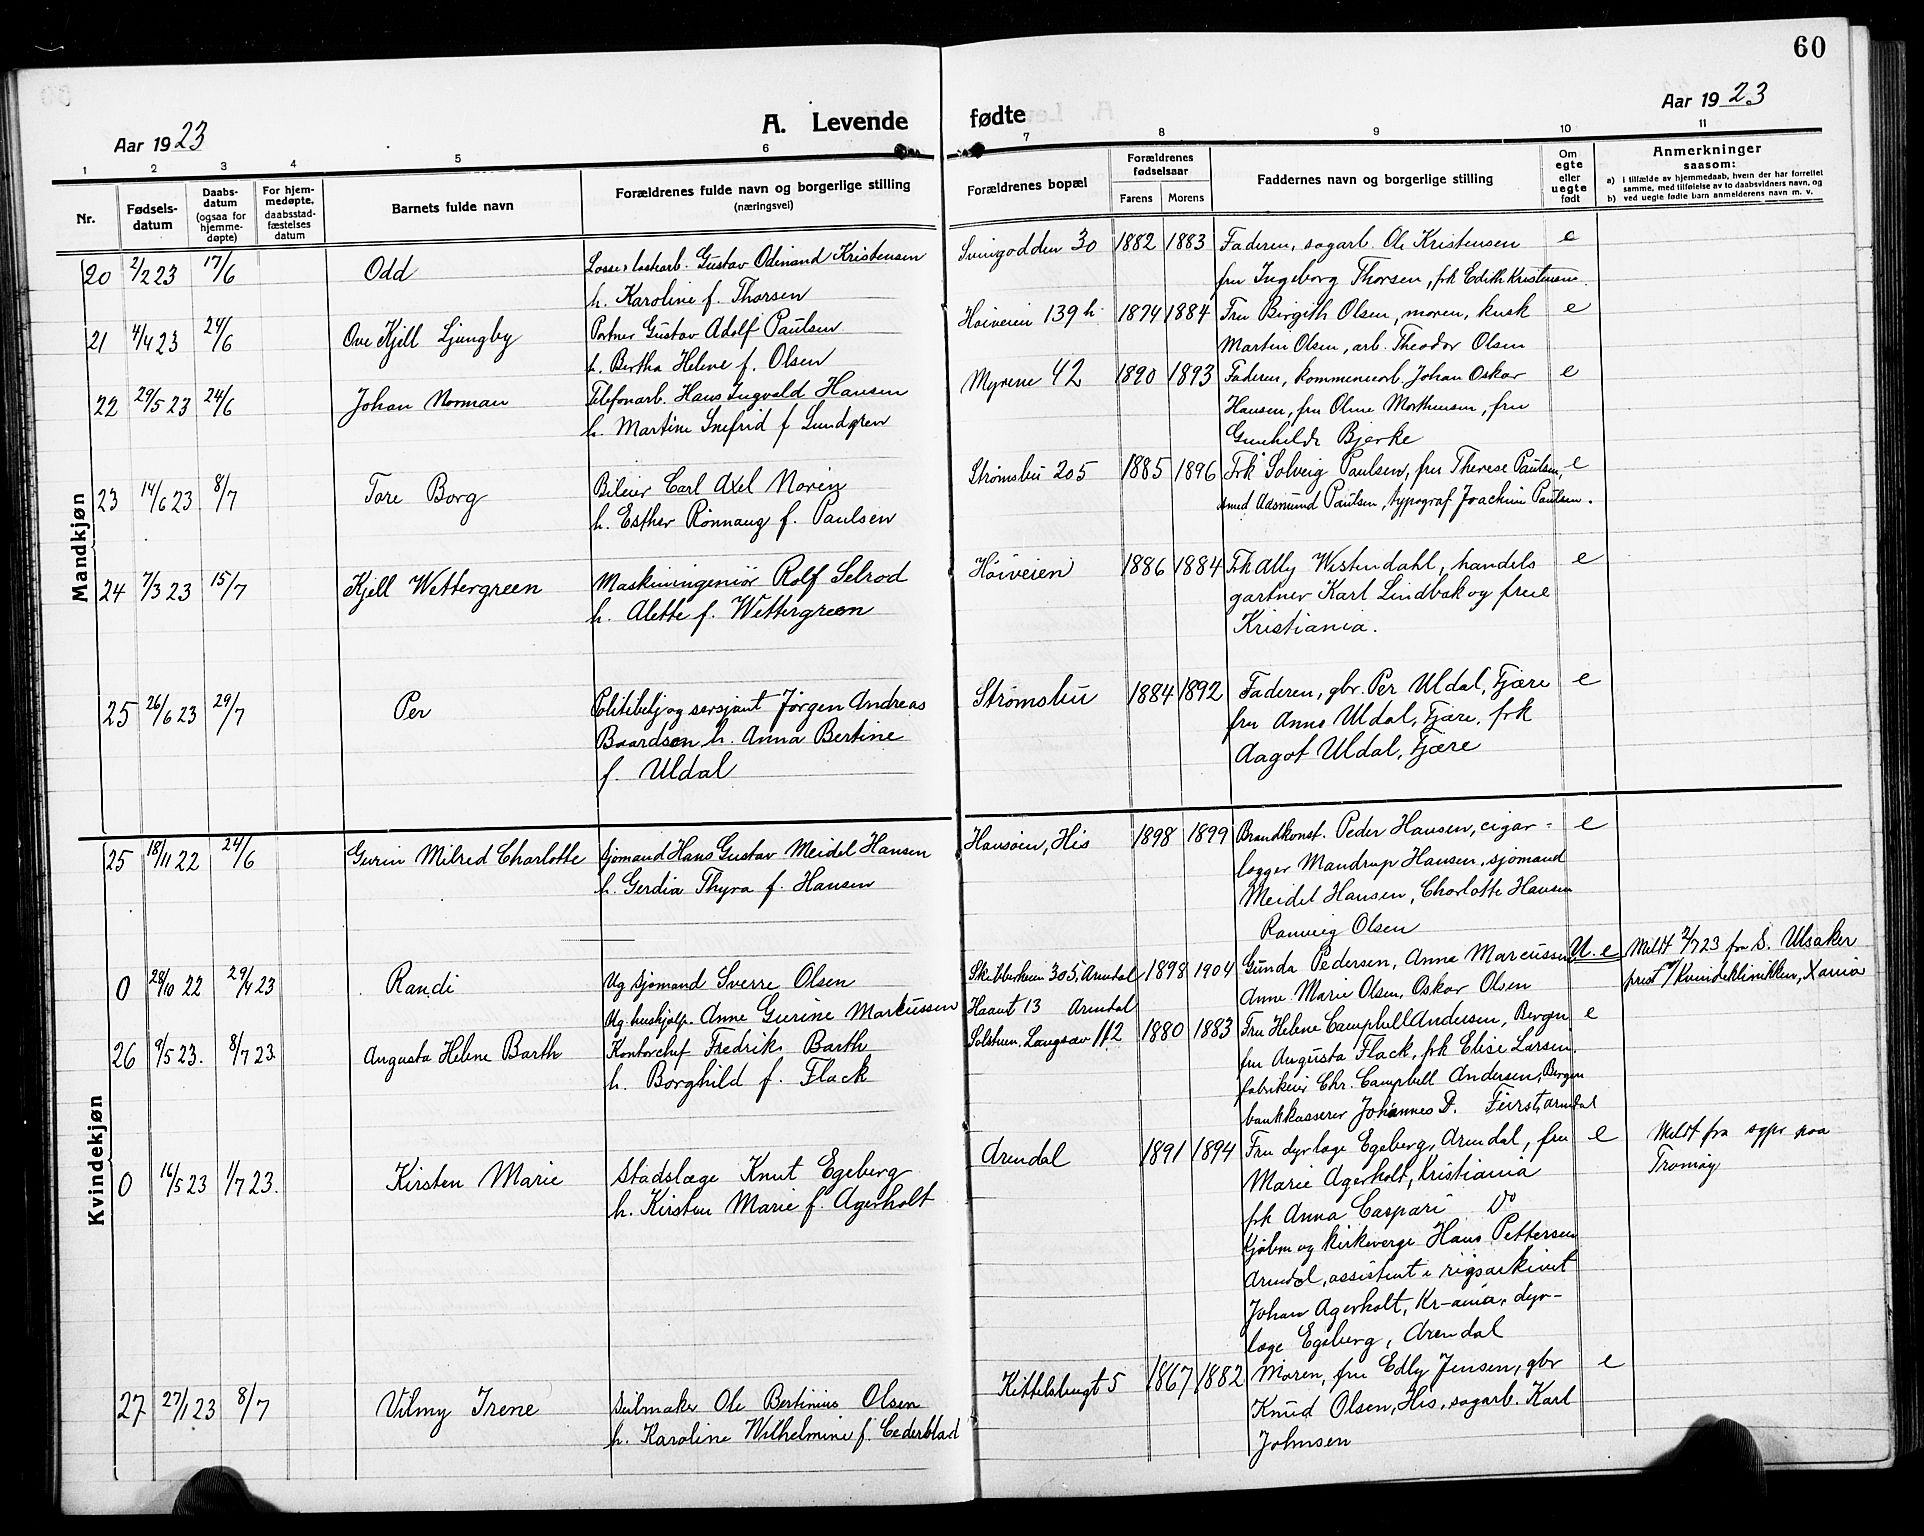 60
Aar 1923
A. Levende fødte
Aar 1923
1 2 3 4 5 6 7 8 9 10 11
Nr.
Fødsels-datum
Daabs-datum (ogsaa for hjemme-døpte)
For hjem-medøpte, daabsstad-fæstelses datum
Barnets fulde navn
Forældrenes fulde navn og borgerlige stilling (næringsvei)
Forældrenes bopæl
Forældrenes fødselsaar
Farens Morens
Faddernes navn og borgerlige stilling
Om egte eller uegte født
Anmerkninger saasom:
a) i tilfælde av hjemmedaab, hvem der har forrettet samme, med tilføielse av to daabsvidners navn, og
b) ved uegte fødte barn anmelderens navn m. v.
Mandkjøn
20 2/2 23 17/6 Odd
Losse & lastearb. Gustav Odinand Kristensen
h. Karoline f. Thorsen
Svinodden 30 1882 1883
Faderen, sagarb. Ole Kristensen e
fru Ingeborg Thorsen, frk Edith Kristensen
21 4/4 23 24/6 Ove Kjell Ljungby
Portner Gustav Adolf Paulsen
h. Bertha Helene f. Olsen
Høiveien 139 h. 1874 1884
Fru Birgith Olsen, moren, kusk e
Martin Olsen, arb. Theodor Olsen
22 29/5 23 24/6 Johan Norman
Telefonarb. Hans Ingvald Hansen
h. Martine Snefrid f Lundgren
Myrene 42 1890 1893
Faderen, kommunearb Johan Oskar e
Hansen, fru Oline Mathisen, fru
Gunhilde Bjerke
23 14/6 23 8/7 Tore Borg
Bileier Carl Axel Noren
h. Esther Rønnaug f. Paulsen
Strømsbu 205 1885 1896
Frk Solveig Paulsen, fru Therese Paulsen, e
smed Aasmund Paulsen, typograf Joachim Paulsen.
24 7/3 23 15/7 Kjell Wettergreen
Maskiningeniør Rolf Selrod
h. Alette f. Wettergreen
Høiveien 1886 1884
Frk Ally Westendahl, handels e
gartner Karl Lindbak og frue
Kristiania.
25 26/6 23 29/7 Per
Politibetj og sersjant Jørgen Andreas
Baardsen h. Anna Bertine
f. Uldal
Strømsbu 1884 1892
Faderen, gbr. Per Uldal, Fjære e
fru Anna Uldal, Fjære, frk
Aagot Uldal, Fjære
Kvindekjøn
25 18/11 22 24/6 Gurin Milred Charlotte
Sjømand Hans Gustav Meidel Hansen
h. Gerdia Thyra f. Hansen
Hausøien, His 1898 1899
Brandkonst. Peder Hansen, cigar- e
lægger Mandrup Hansen, sjømand
Meidel Hansen, Charlotte Hansen
Ranveig Olsen
0 28/10 22 29/4 23 Randi
Ug. Sjømand Sverre Olsen
Ug. hushjælp. Anne Gurine Markussen
Skibberheien 305, Arendal 1898 1904
Haavet 13 Arendal
Gunda Pedersen, Anna Marcussen U. e
Anne Marie Olsen, Oskar Olsen
Meldt 2/7 23 fra S. Ulsaker
prest v/ Kvindeklinikken, Xania
26 9/5 23. 8/7 23. Augusta Helene Barth
Kontorchef Fredrik Barth
h. Borghild f. Flack
Solstuen, Langsæv 112 1880 1883
Fru Helene Campbell Andersen, Bergen e
fru Augusta Flack, frk Elise Larsen.
fabrikeier Chr. Campbell Andersen, Bergen
bankkasserer Johannes D. Fürst, Arendal
0 16/5 23 1/7 23. Kirsten Marie
Stadslæge Knut Egeberg
h. Kirsten Marie f. Agerholt
Arendal 1891 1894
Fru dyrlæge Egeberg, Arendal, fru e
Marie Agerholt, Kristiania
frk Anna Caspari Do
kjøbm og kirkeverge Hans Pettersen
Arendal, assistent i rigsarkivet
Johan Agerholt, Kr-ania, dyr-
læge Egeberg, Arendal
Meldt fra sgpr paa
Tromøy
27 27/1 23 8/7 Vilmy Irene
Seilmaker Ole Bertinius Olsen
h. Karoline Wilhelmine f. Cederblad
Kittelsbugt 5 1867 1882
Moren, fru Edly Jensen, gbr e
Knud Olsen, His, sagarb. Karl
Johnsen